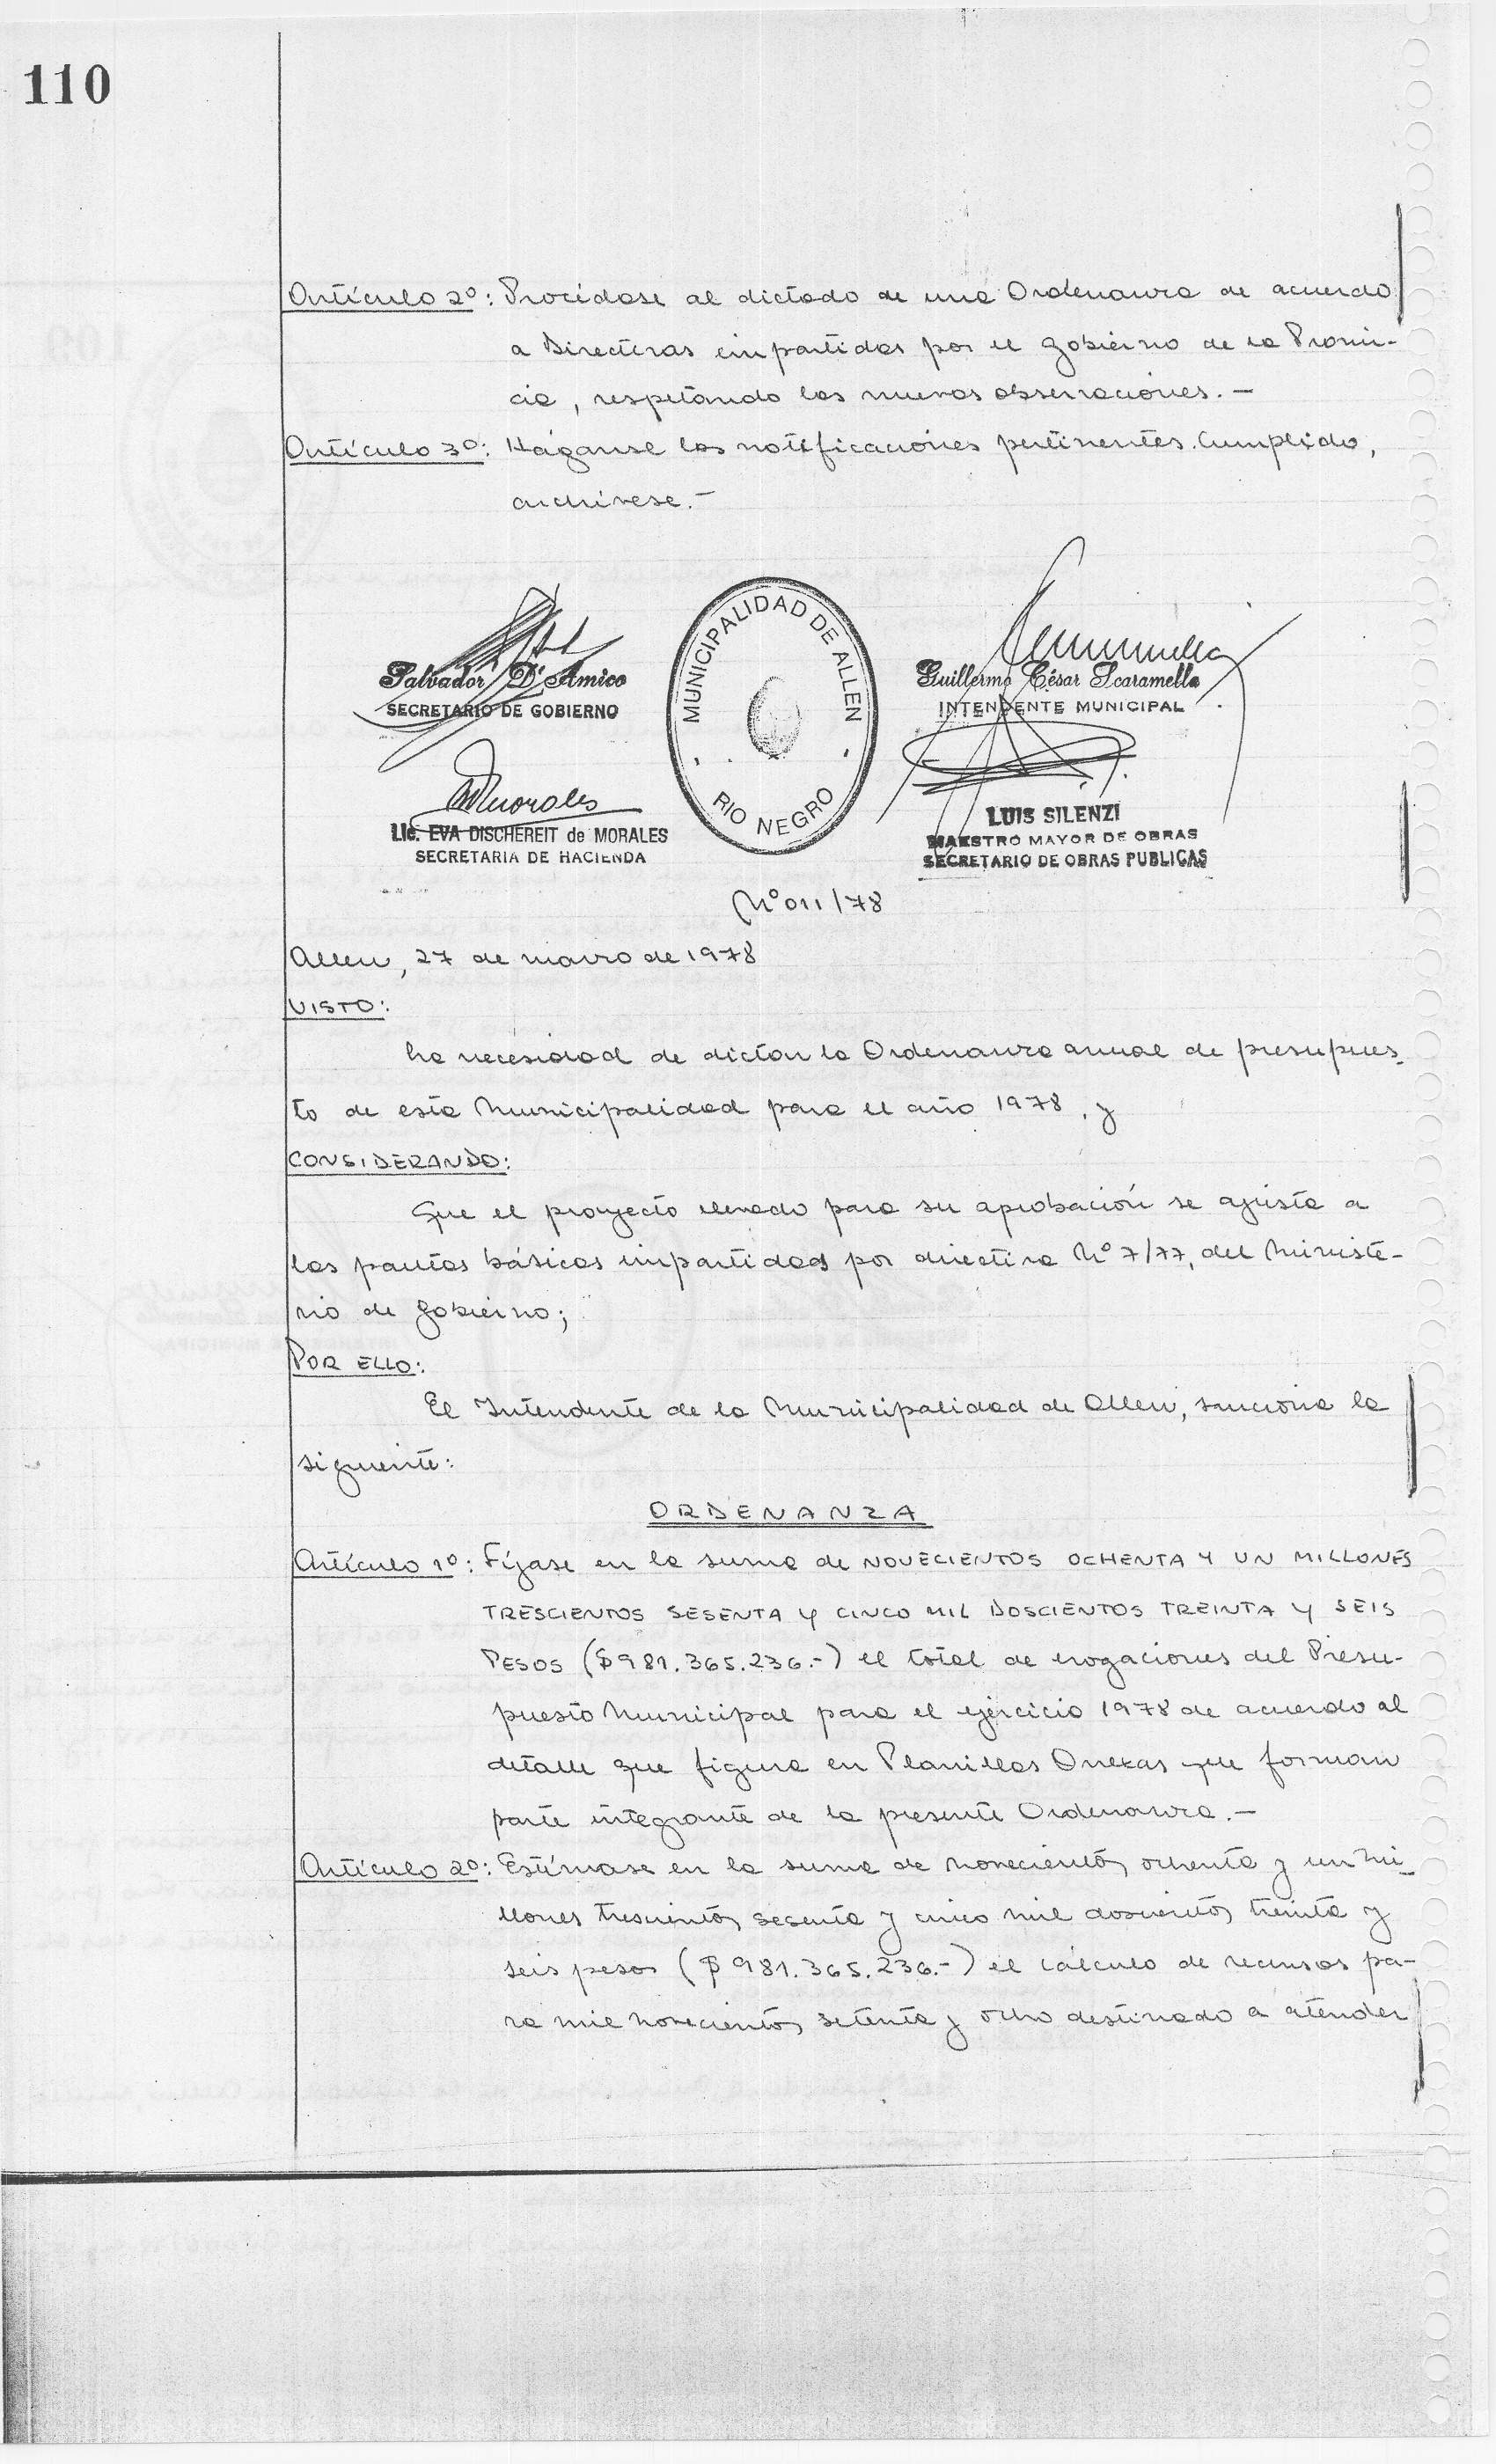 110
Artículo 2º: Procédase al dictado de una Ordenanza de acuerdo
a Directivas impartidas por el Gobierno de la Provin-
cia, respetando las nuevas observaciones.-
Artículo 3º: Háganse las notificaciones pertinentes. Cumplido,
archívese.-
Salvador D'Amico
SECRETARIO DE GOBIERNO
MUNICIPALIDAD DE ALLEN
RIO NEGRO
Guillermo César Scaramella
INTENDENTE MUNICIPAL
Morales
Lic. EVA DISCHEREIT de MORALES
SECRETARIA DE HACIENDA
LUIS SILENZI
MAESTRO MAYOR DE OBRAS
SECRETARIO DE OBRAS PUBLICAS
Nº 011/78
Allen, 27 de marzo de 1978
VISTO:
La necesidad de dictar la Ordenanza anual de presupues-
to de esta Municipalidad para el año 1978, y
CONSIDERANDO:
Que el proyecto elevado para su aprobación se ajusta a
las pautas básicas impartidas por directiva Nº 7/77, del Ministe-
rio de Gobierno;
POR ELLO:
El Intendente de la Municipalidad de Allen, sanciona la
siguiente:
ORDENANZA
Artículo 1º: Fíjase en la suma de NOVECIENTOS OCHENTA Y UN MILLONES
TRESCIENTOS SESENTA Y CINCO MIL DOSCIENTOS TREINTA Y SEIS
PESOS ($981.365.236.-) el total de erogaciones del Presu-
puesto Municipal para el ejercicio 1978 de acuerdo al
detalle que figura en Planillas Anexas que forman
parte integrante de la presente Ordenanza.-
Artículo 2º: Estímase en la suma de novecientos ochenta y un mi-
llones trescientos sesenta y cinco mil doscientos treinta y
seis pesos ($ 981.365.236.-) el cálculo de recursos pa-
ra mil novecientos setenta y ocho destinado a atender